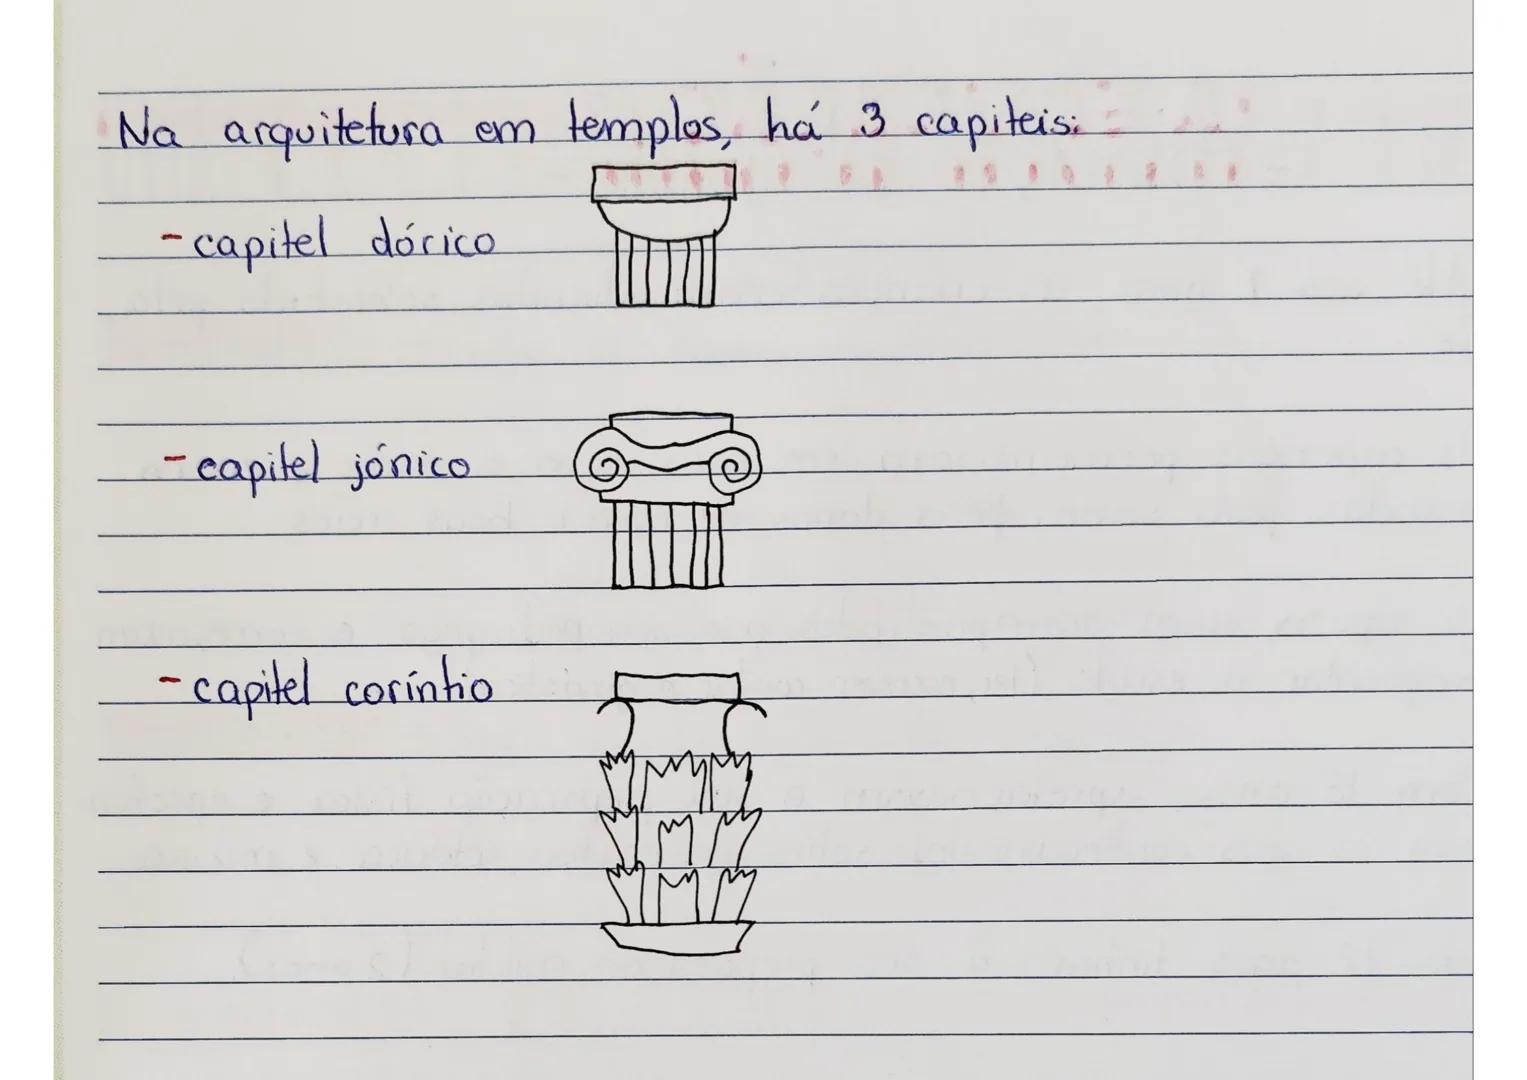 Na arquitetura em templos, há 3 capiteis:
- capitel dórico
- capitel jónico
- capitel coríntio